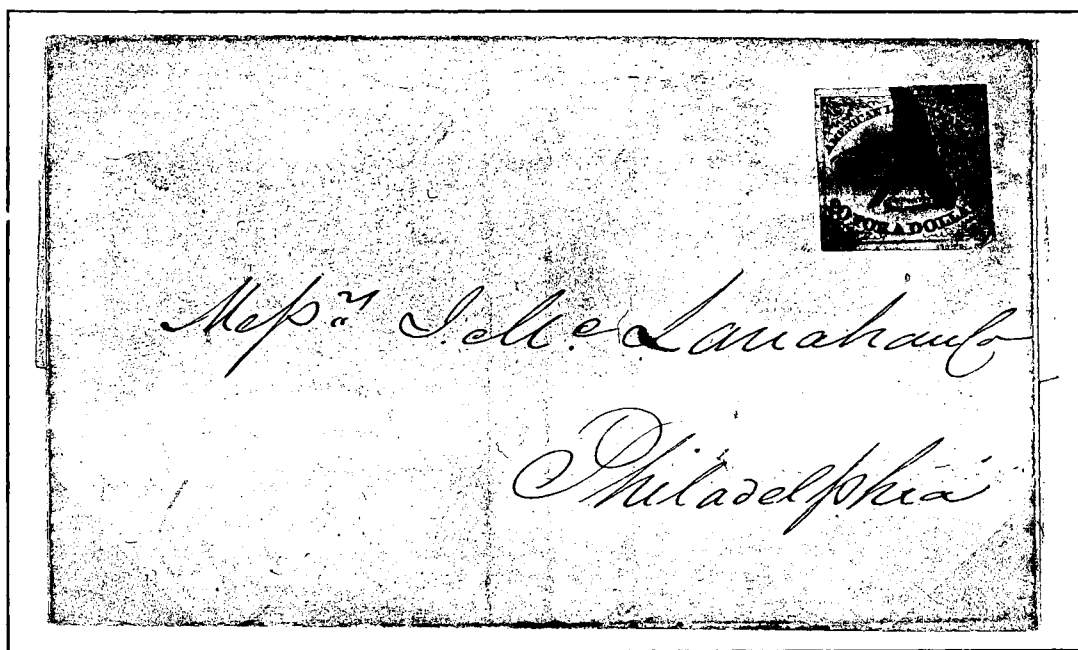 AMERICAN
20 FOR A DOLLAR
Messrs J. Mc Lanahan Co
Philadelphia